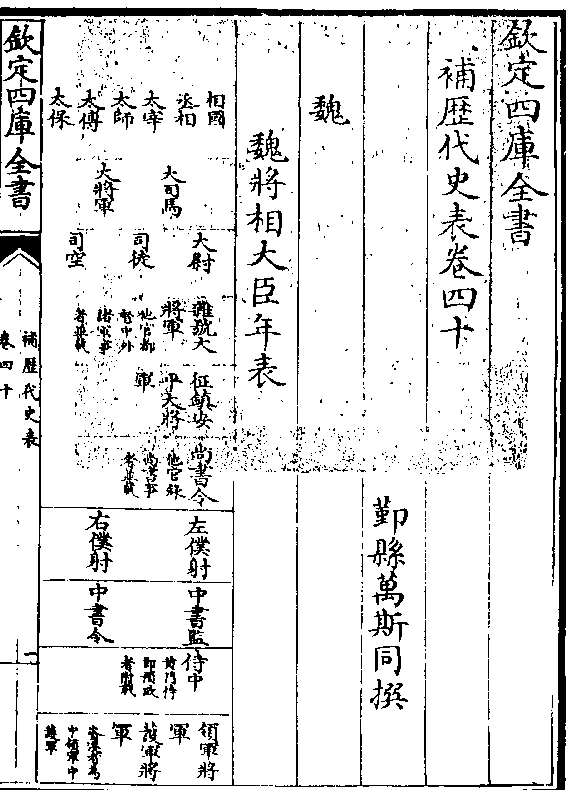 欽定四庫全書
補歷代史表卷四十
鄞縣萬斯同撰
魏
魏將相大臣年表
相國
丞相
太宰
太師
太傅
太保
大司馬
大將軍
太尉
司徒
司空
雜號大
將軍
他官都
督中外
諸軍事
者並載
征鎮安
平大將
軍
尚書令
他官錄
尚書事
者並載
左僕射
右僕射
中書監
中書令
侍中
黃門侍
郎預政
者附載
領軍將
軍
護軍將
軍
資深者為
中領軍中
護軍
欽定四庫全書
補歷代史表
卷四十
一